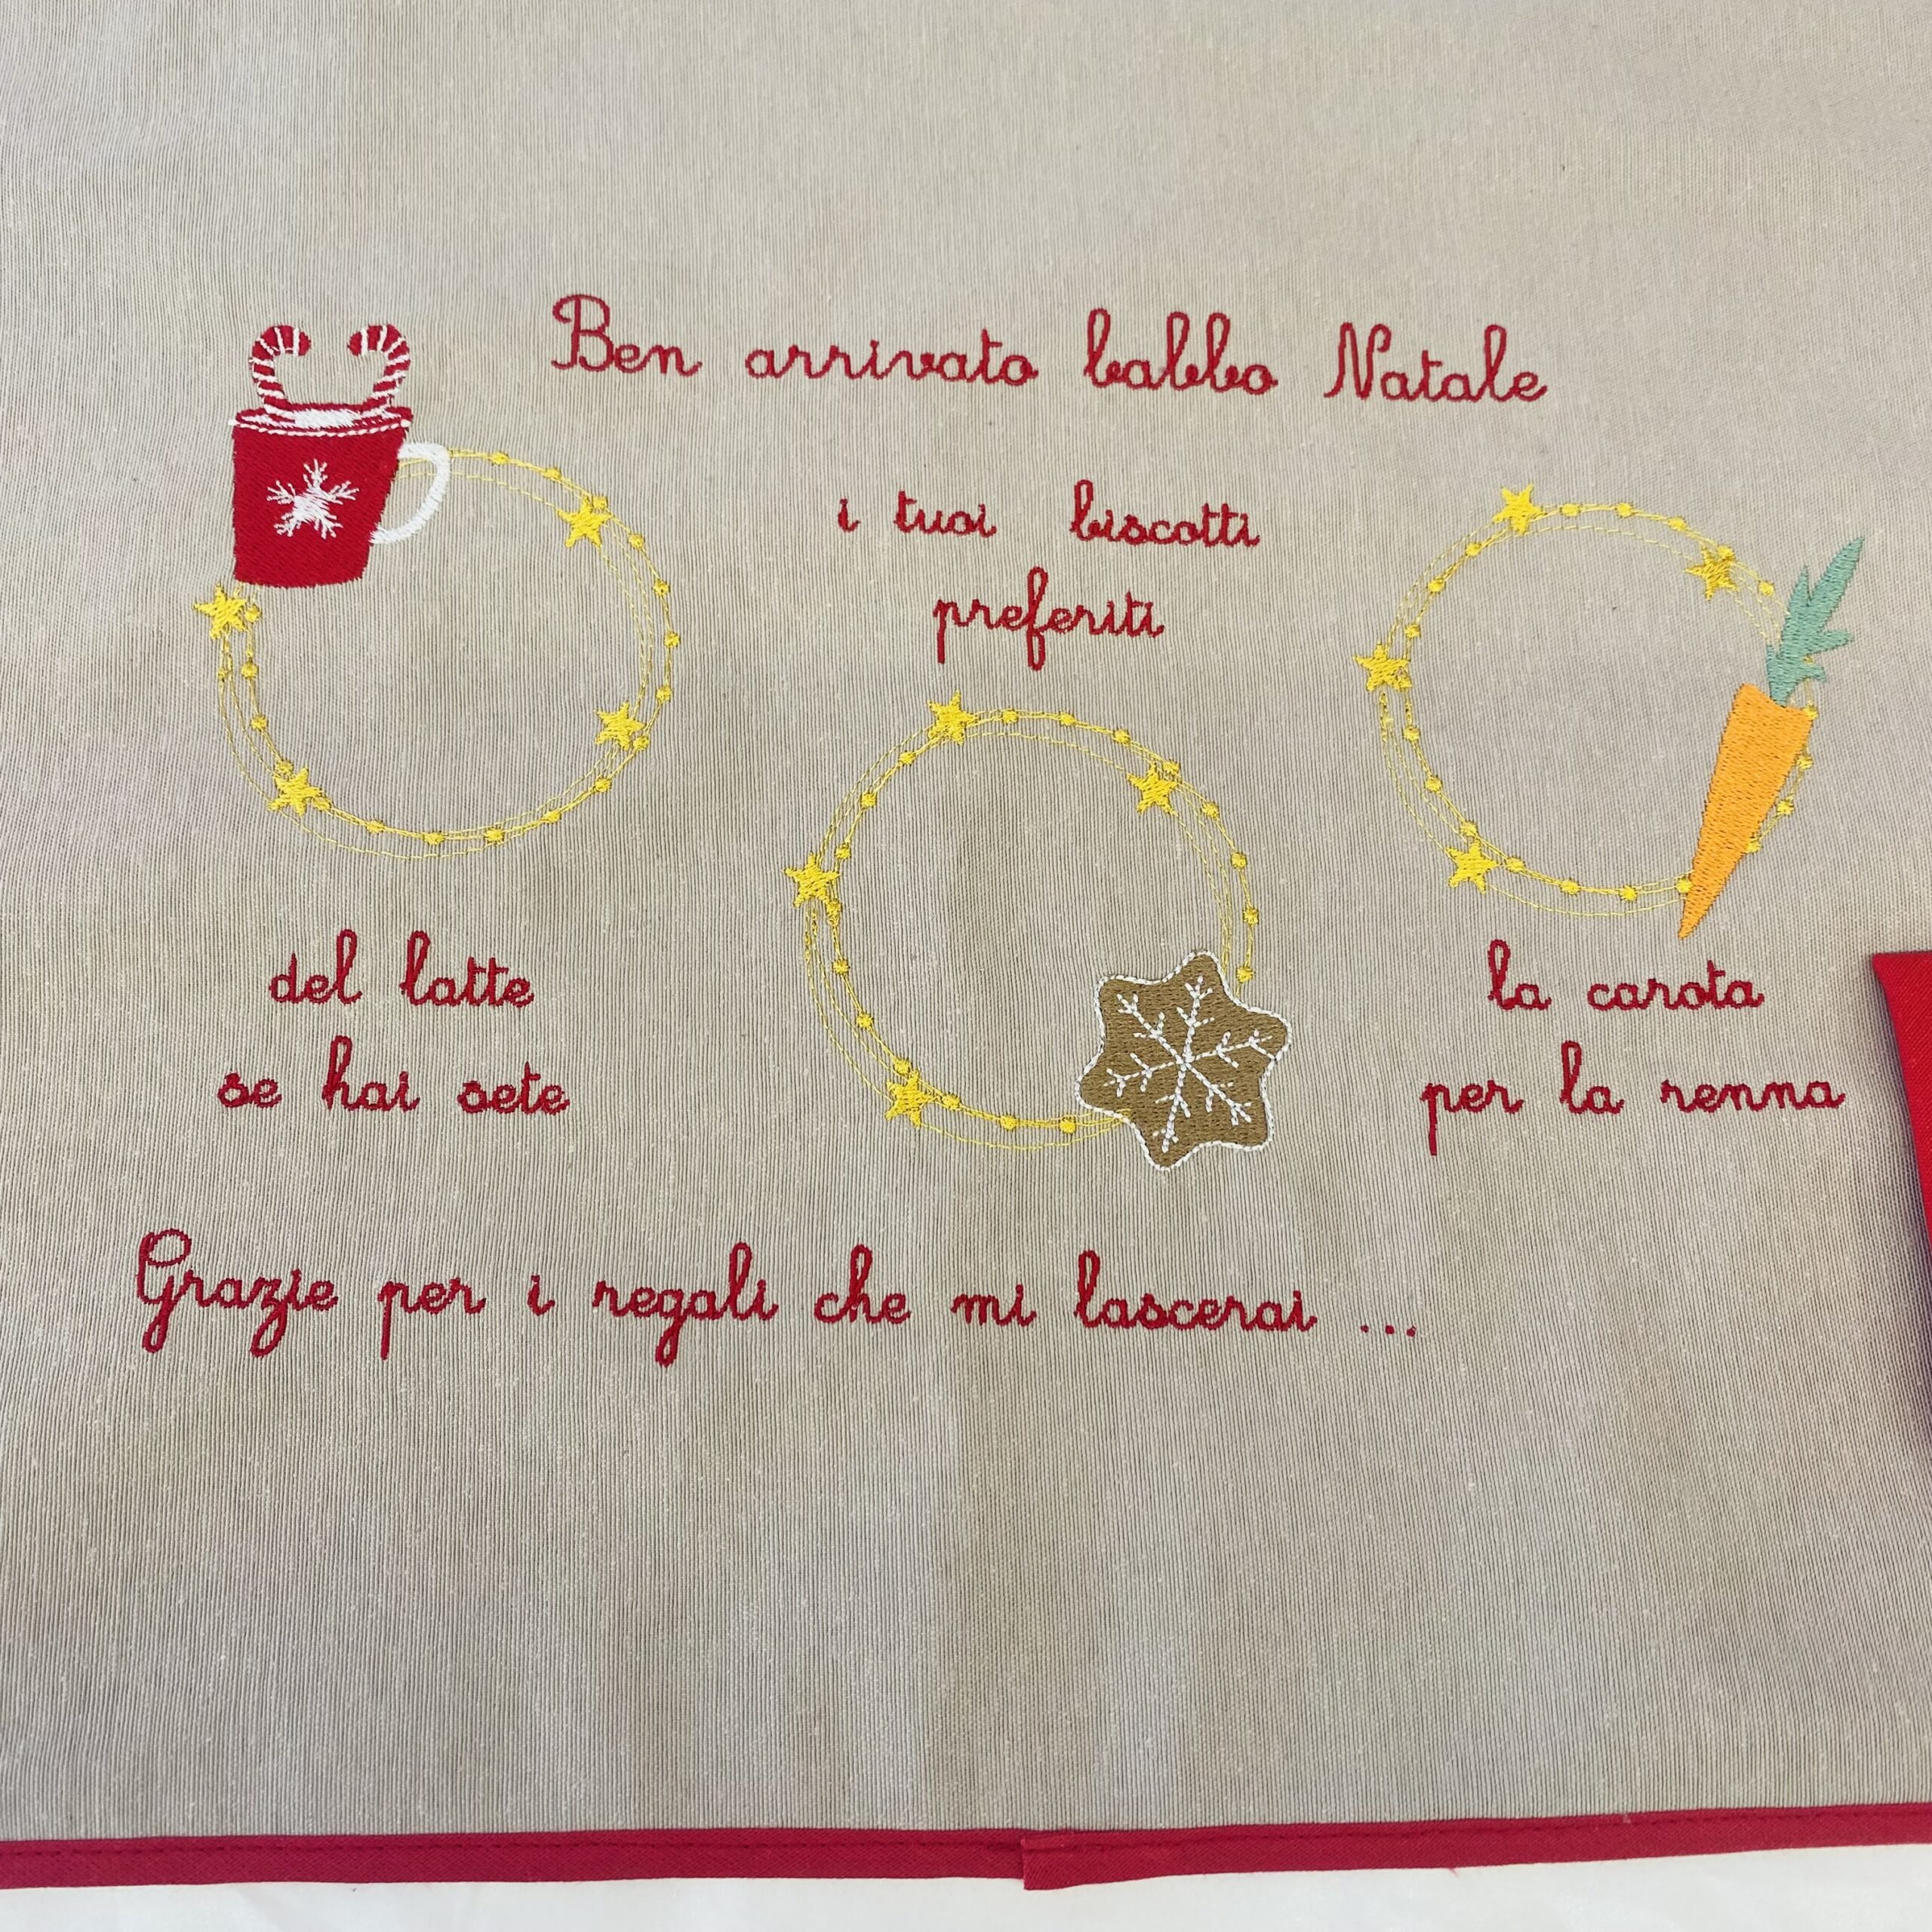 Ben arrivato babbo Natale
i tuoi biscotti
preferiti
del latte
se hai sete
la carota
per la renna
Grazie per i regali che mi lascerai ...